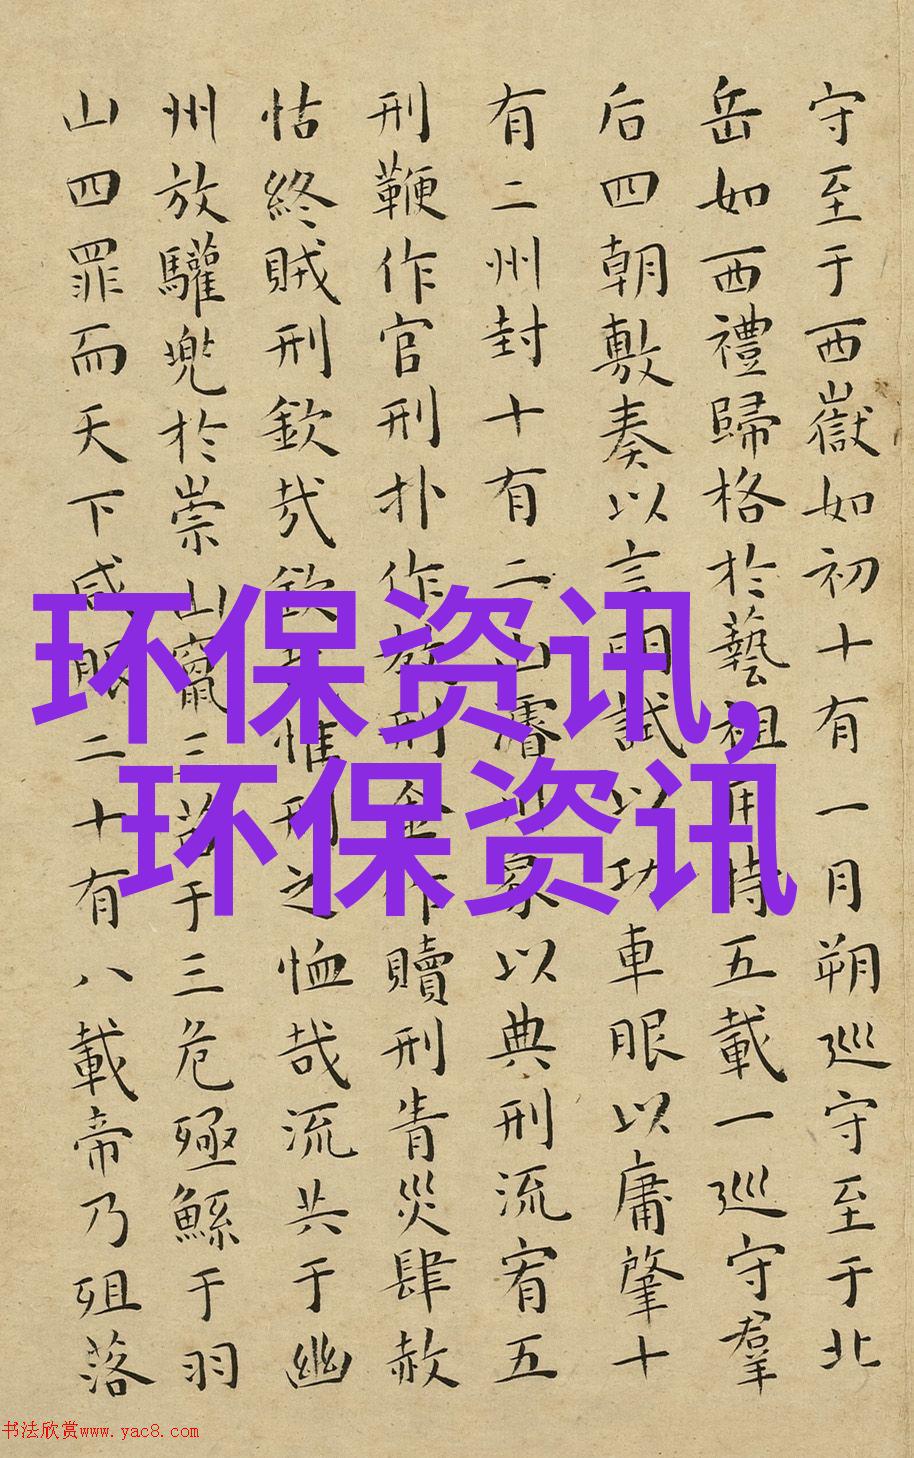 守至于西嶽如初十有一月朔巡守至于北
岳如西禮歸格於藝祖用特五載一巡守羣
后四朝敷奏以言明試以功車服以庸肇十
有二州封十有二山濬川象以典刑流宥五
刑鞭作官刑扑作教刑金作贖刑眚災肆赦
怙終賊刑欽哉欽哉惟刑之恤哉流共于幽
州放驩兜於崇山竄三苗于三危殛鯀于羽
山四罪而天下咸服二十有八載帝乃殂落
环保资讯,
环保资讯
书法欣赏www.yac8.com